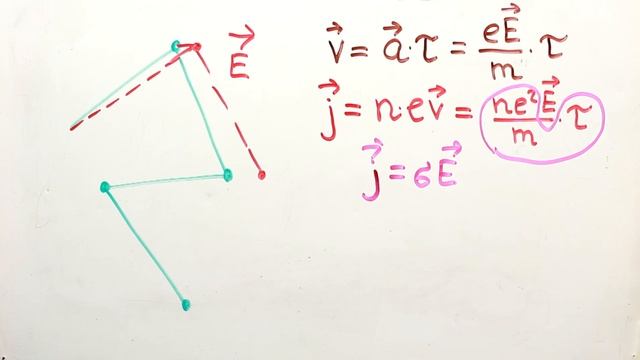 E⃗
v⃗ = a⃗·τ = eE⃗/m · τ
j⃗ = n·ev⃗ = ne²E⃗/m · τ
j⃗ = σE⃗